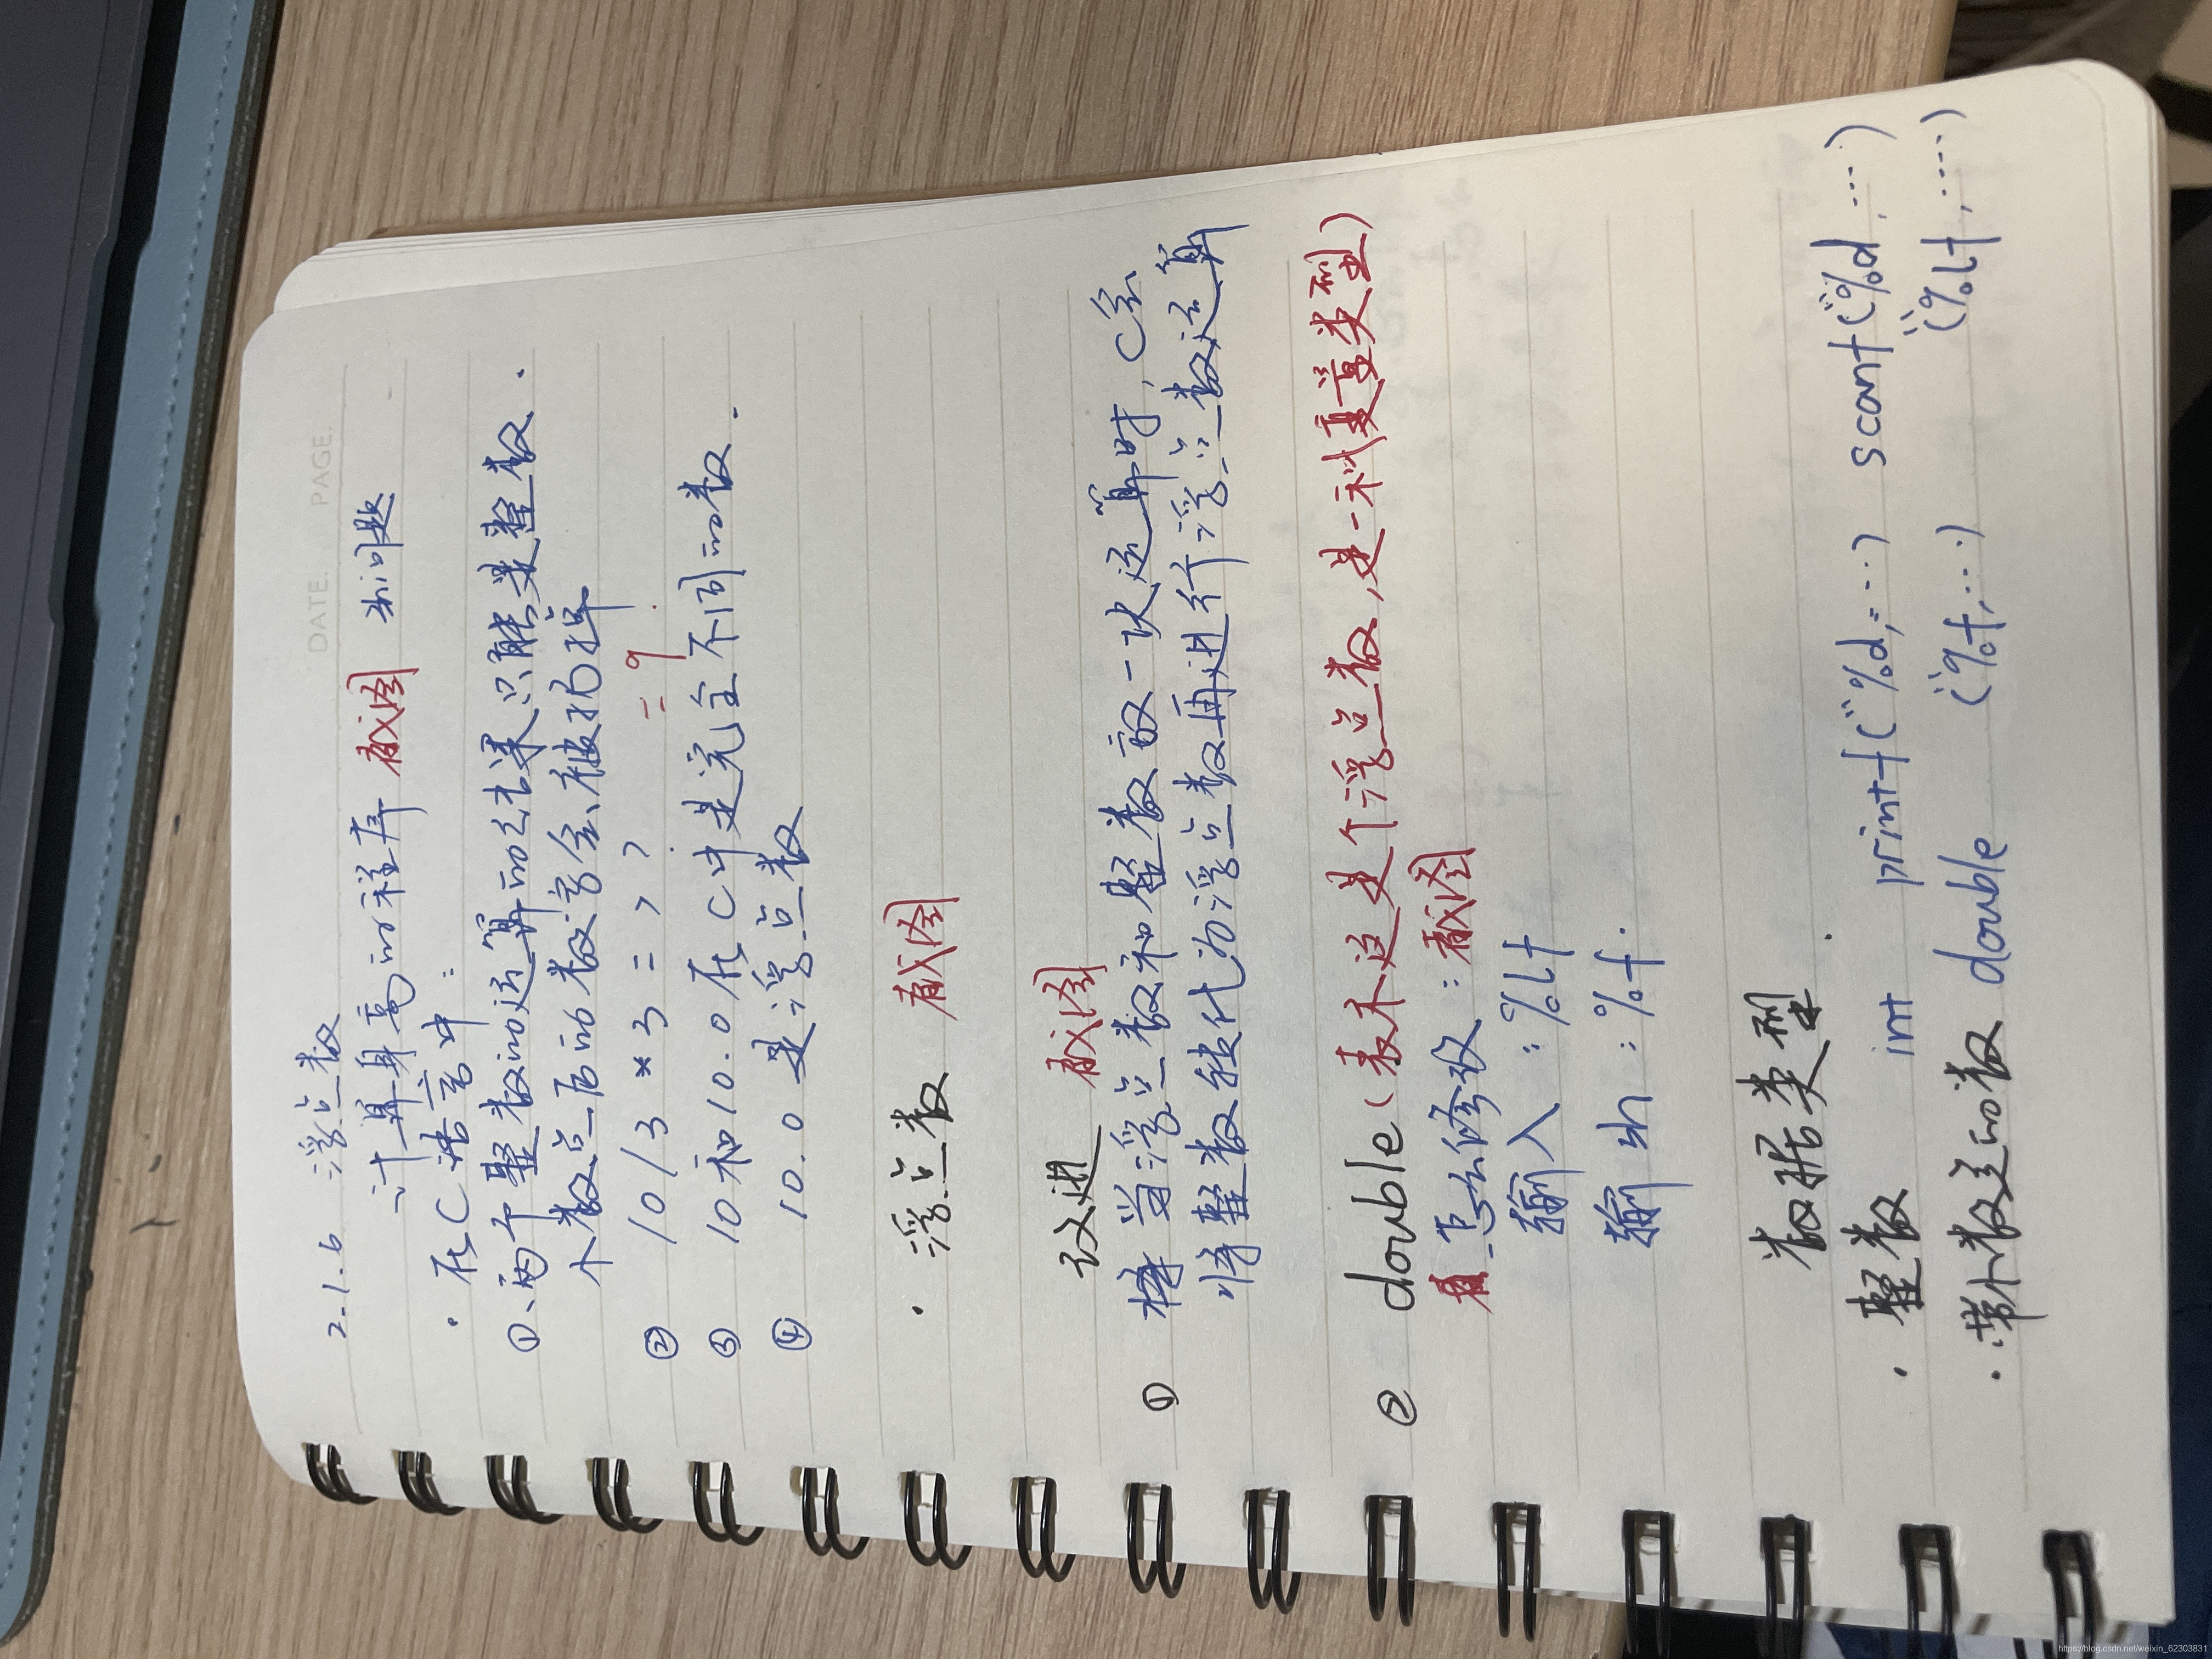 DATE. PAGE.
2.1.6 浮点数
计算身高的程序 截图 出问题
· 在C语言中:
①、两个整数的运算的结果只能是整数.
小数点后的数字会被扔掉
② 10/3 * 3 = > ? = 9
③ 10和10.0在C中是完全不同的数.
④ 10.0 是浮点数
· 浮点数 截图
改进 截图
① 当浮点数和整数放一次运算时,C会
将整数转化为浮点数再进行浮点数运算
② double (表示这是个浮点数,是一种变量类型)
怎么修改:截图
输入:%lf
输出:%f.
数据类型.
· 整数 int printf("%d,...) scanf("%d,...)
· 带小数点的数 double ("%f,...) ("%lf,....)
https://blog.csdn.net/weixin_62303831